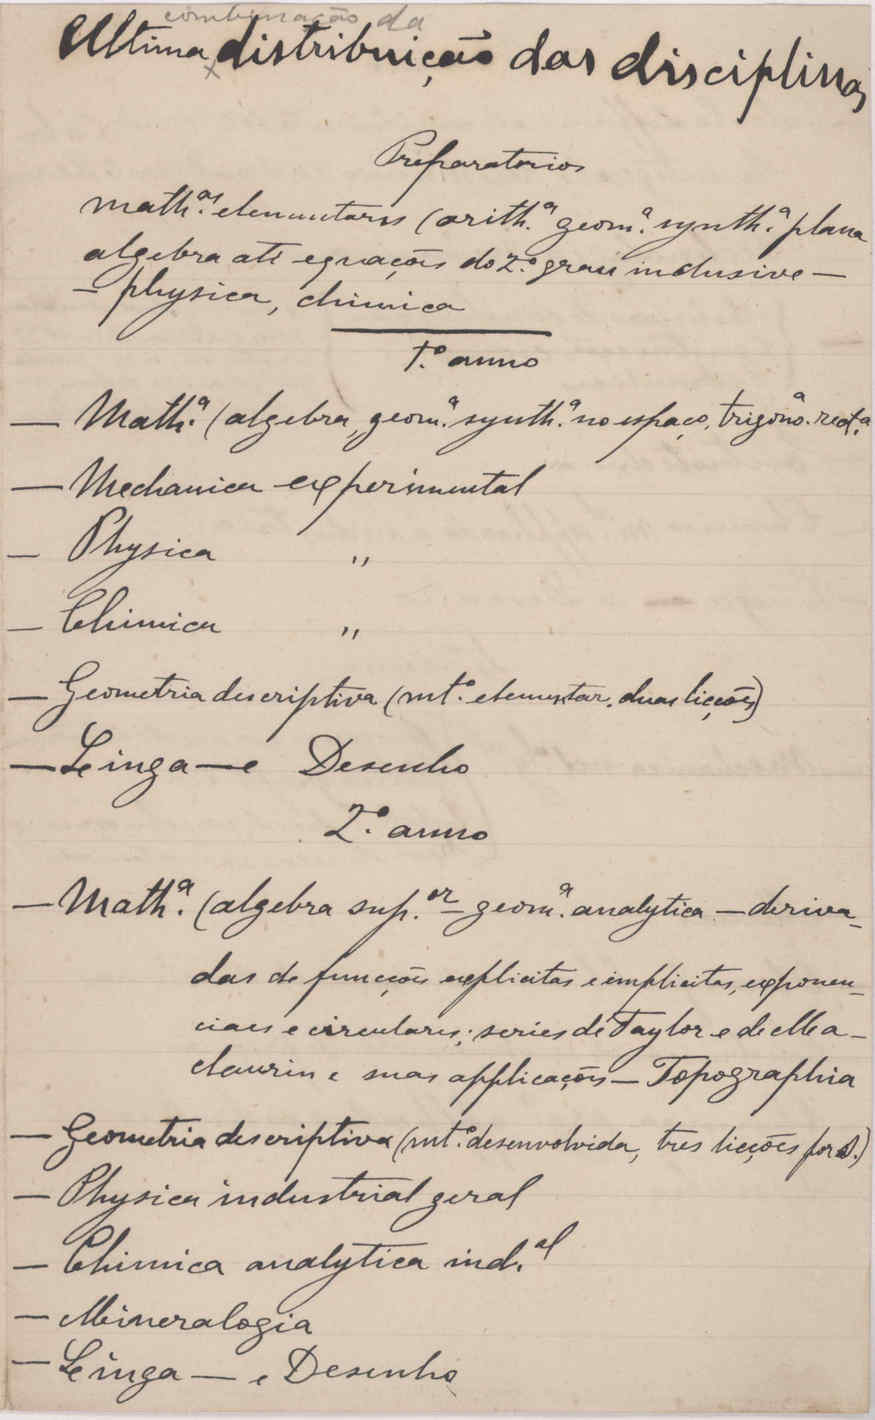 combinação da
Ultima distribuição das disciplinas
Preparatorios
math.as elementares (arith.a geom.a synth.a plana
algebra até equações do 2.o grau inclusive —
— physica, chimica
1.o anno
— Math.a (algebra, geom.a synth.a no espaço, trigon.a rect.a
— Mechanica experimental
— Physica "
— Chimica "
— Geometria descriptiva (mt.o elementar, duas licções)
— Linga — e Desenho
2.o anno
— Math.a (algebra sup.or — geom.a analytica — deriva-
das de funcções explicitas e implicitas, exponen-
ciaes e circulares; series de Taylor e de Ma-
claurin e suas applicações — Topographia
— Geometria descriptiva (mt.o desenvolvida, tres licções por s.)
— Physica industrial geral
— Chimica analytica ind.al
— Mineralogia
— Linga — e Desenho